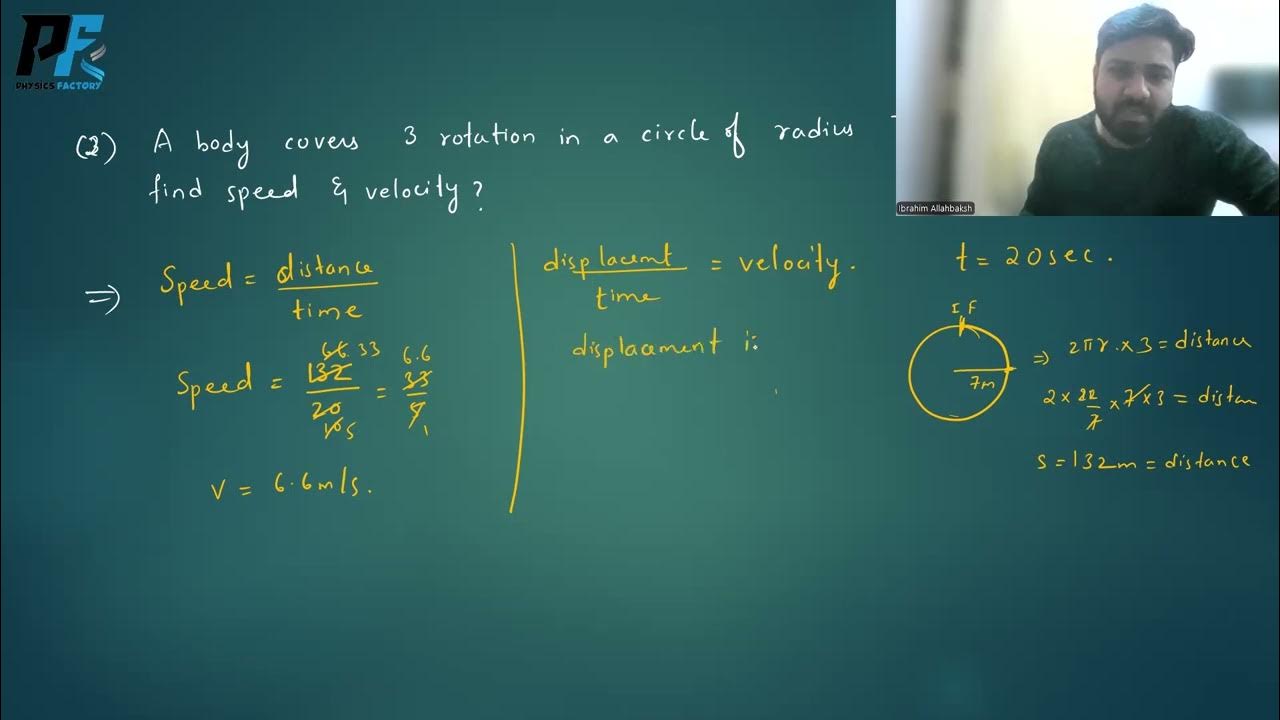 PF
PHYSICS FACTORY
Ibrahim Allahbaksh
(2) A body covers 3 rotation in a circle of radius
find speed & velocity?
⇒ Speed = distance / time
Speed = 132 / 20 = 33 / 5
66 33
6.6
10 5
1
v = 6.6 m/s.
displacemt / time = velocity.
displacement i:
t = 20 sec.
I F
7m
⇒ 2πr. × 3 = distance
2 × 22/7 × 7 × 3 = distan
s = 132m = distance